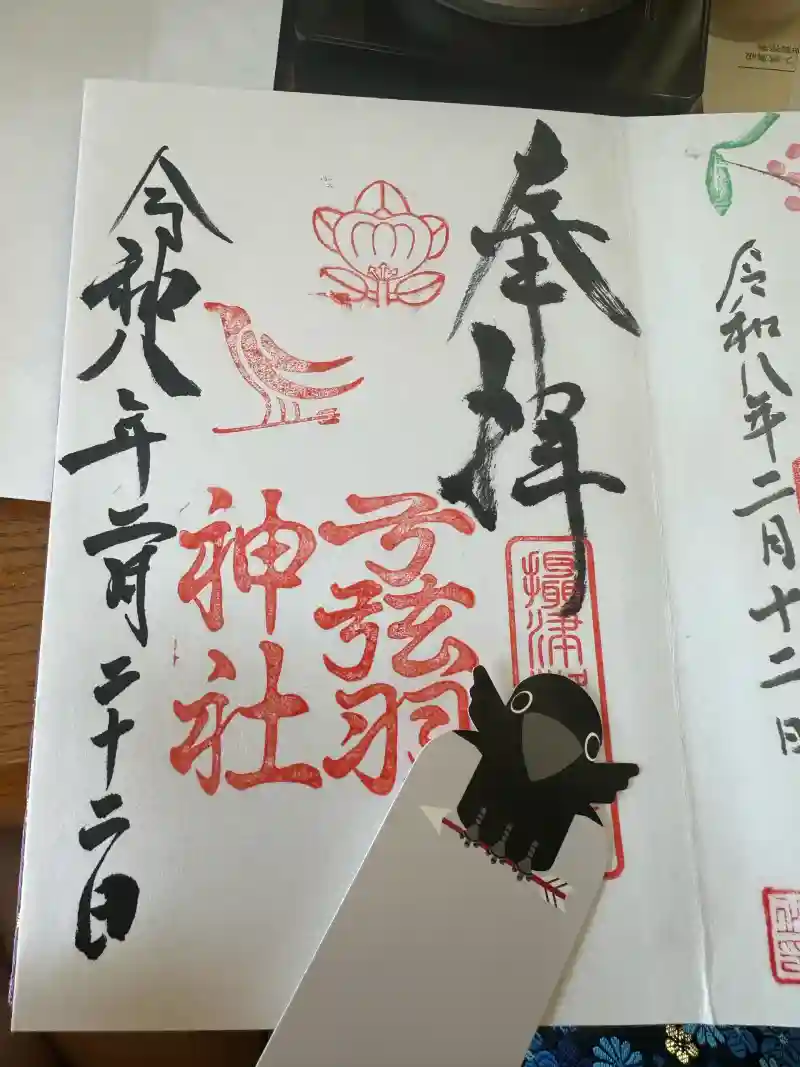 令和八年二月十二日
奉拝
攝津
弓弦羽
神社
令和八年二月二十二日